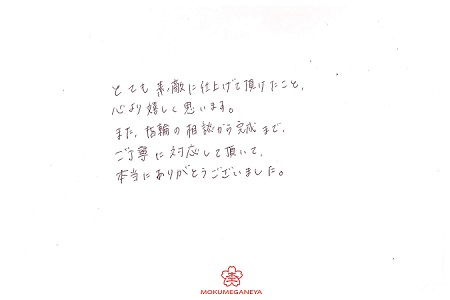 とても素敵に仕上げて頂けたこと、
心より嬉しく思います。
また、指輪の相談から完成まで、
ご丁寧に対応して頂いて、
本当にありがとうございました。
MOKUMEGANEYA